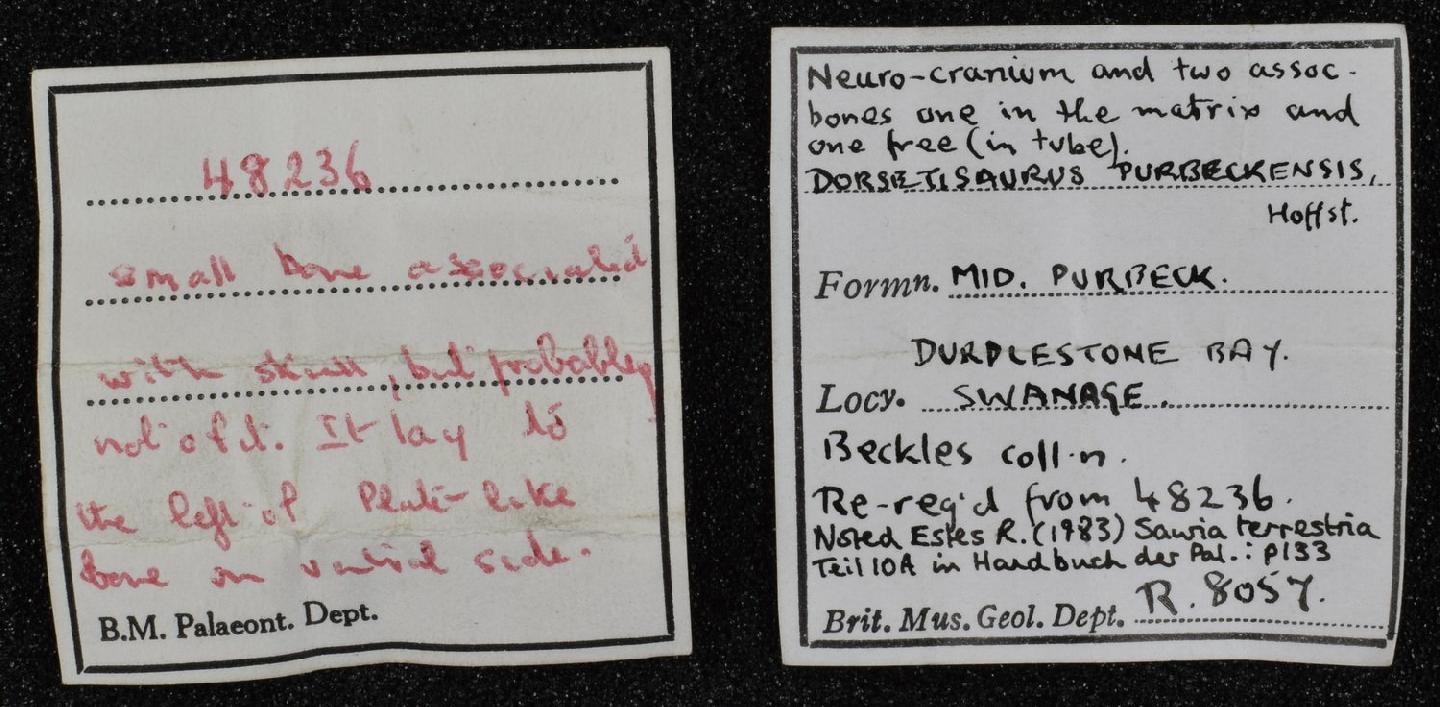 48236
small bone associated
with skull, but probably
not of it. It lay to
the left of Plate-like
bone on ventral side.
B.M. Palaeont. Dept.
Neuro-cranium and two assoc-
bones one in the matrix and
one free (in tube).
DORSETISAURUS PURBECKENSIS,
Hoffst.
Formn. MID. PURBECK.
DURDLESTONE BAY.
Locy. SWANAGE.
Beckles coll·n.
Re-reg'd from 48236.
Noted Estes R. (1983) Sauria terrestria
Teil 10A in Handbuch der Pal.: p133
Brit. Mus. Geol. Dept. R. 8057.